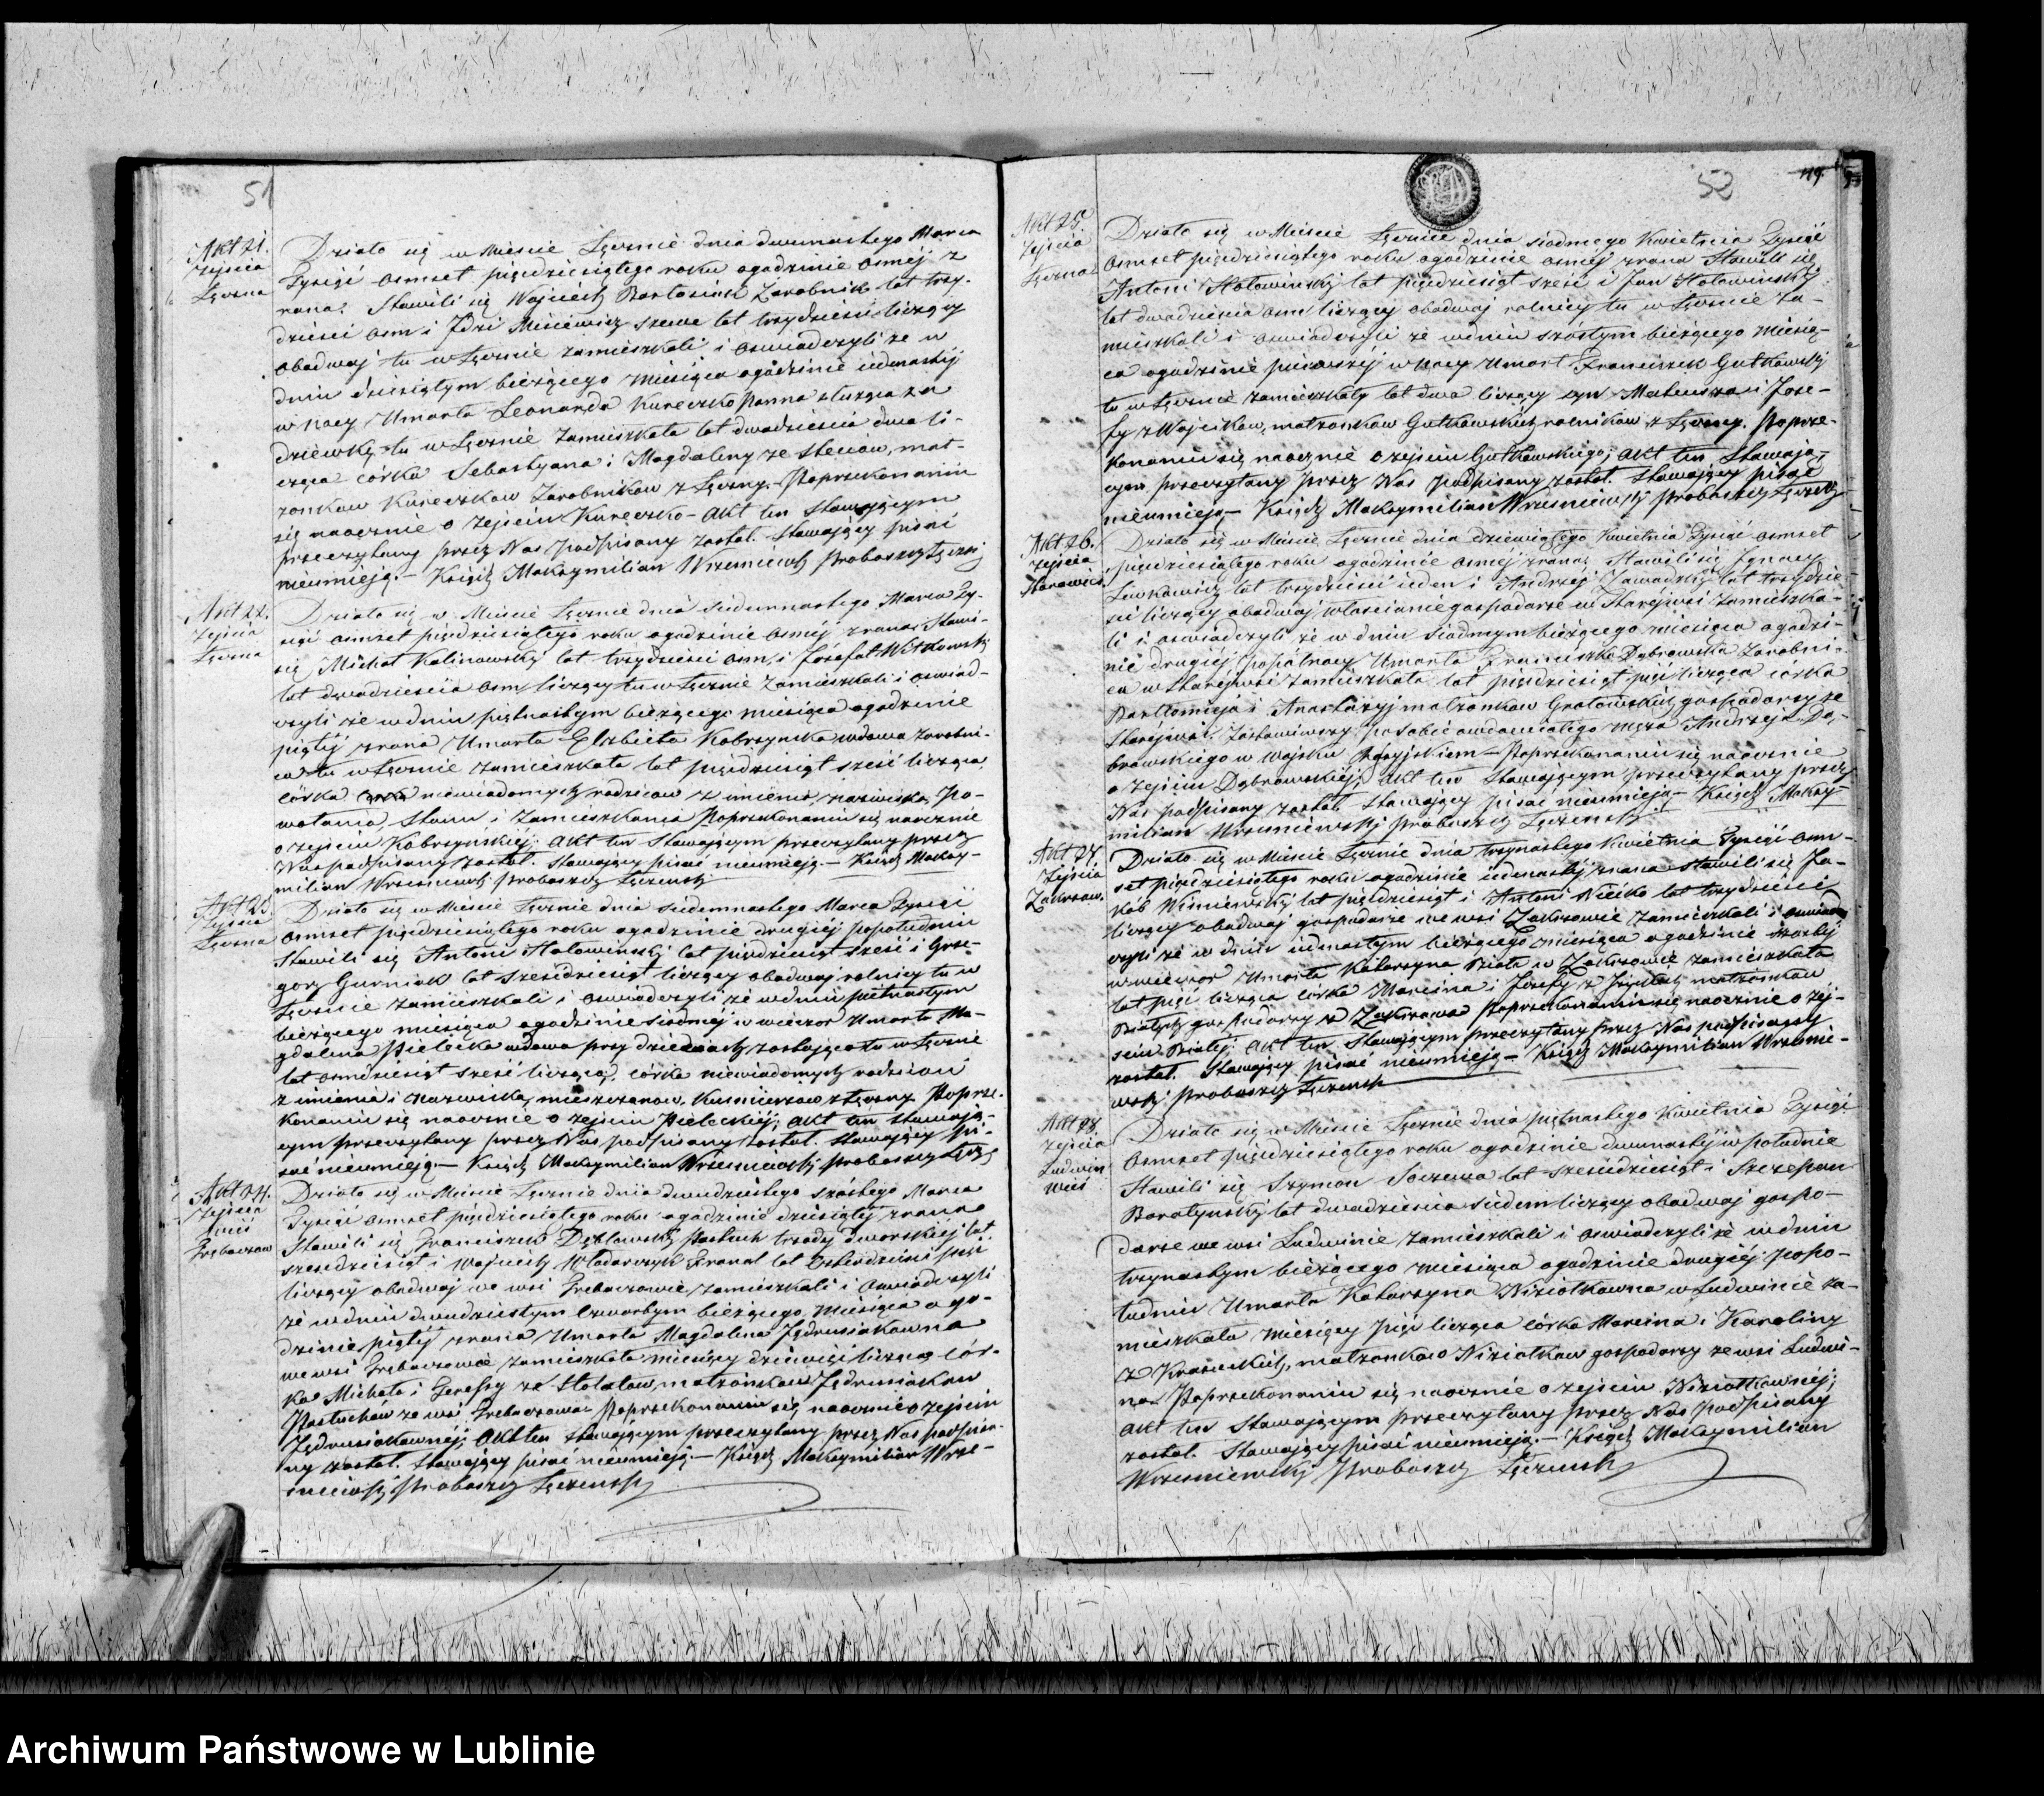 51
Akt 21.
Zejscia
Łęczna
Działo się w Mieście Łęcznie dnia dwunastego Marca
Tysiąć osmset pięćdziesiątego roku ogodzinie osmej z
rana. Stawili się Wojciech Bartosiak Zarobnik lat trzy-
dzieści osm i Idzi Misiewicz szewc lat trzydzieści liczący
obadwaj tu w Łęcznie zamieszkali i oswiadczyli ze w
dniu dziesiątym bieżącego miesiąca ogodzinie iedenastej
w nocy Umarła Leonarda Kureczko Panna słuząca za
dziewkę tu w Łęcznie Zamieszkała lat dwadzieścia dwa li-
cząca córka Sebastyana i Magdaleny ze Steciow, mał-
zonkow Kureczkow Zarobnikow z Łęczny. Poprzekonaniu
się naocznie o zejsciu Kureczko - akt ten Stawającym
przeczytany przez Nas podpisany został. Stawający pisać
nieumieją. — Xsiądz Maksymilian Wrzesniewski Proboszcz Łęczń
Akt 22.
Zejscia
Łęczna
Działo się w Mieście Łęcznie dnia siedemnastego Marca Ty-
siąć osmset pięćdziesiątego roku ogodzinie osmej zrana Stawi-
się Michał Kalinowski lat trzydzieści osm, i Józefat Witkowski
lat dwadzieścia osm liczący tu w Łęcznie zamieszkali i oswiad-
czyli że w dniu piętnastym bieżącego miesiąca ogodzinie
piątej zrana Umarła Elzbieta Kobrzynska wdowa zarobni-
ca tu w Łęcznie zamieszkała lat pięćdziesiąt sześć licząca,
córka niewiadomych rodziców z imienia, nazwiska, Po-
wołania, Stanu i Zamieszkania Poprzekonaniu się naocznie
o zejsciu Kobrzyńskiej. akt ten Stawającym przeczytany przez
Nas podpisany został. Stawający pisać nieumieją. — Ksiądz Maksy-
milian Wrzesniewski Proboszcz Łęczenski
Akt 23.
Zejscia
Łęczna
Działo się w Mieście Łęcznie dnia siedemnastego Marca Tysiąć
osmset pięćdziesiątego roku ogodzinie drugiej popołudniu
Stawili się Antoni Hołowinski lat pięćdziesiąt sześć i Grze-
gorz Gurniak lat sześćdziesiąt liczący obadwaj rolnicy tu w
Łęcznie zamieszkali i oswiadczyli że w dniu piętnastym
bieżącego miesiąca ogodzinie siodmej w wieczor Umarła Ma-
gdalena Pielecka wdowa przy dzieciach zostająca tu w Łęcznie
lat osmdziesiąt sześć licząca, córka niewiadomych rodzicow
z imienia i nazwiska, mieszczanow, Kusnierzow z Łęczny. Poprze-
konaniu się naocznie o zejsciu Pieleckiej; akt ten stawają-
cym przeczytany przez Nas podpisany został. Stawający pi-
sać nieumieją. — Ksiądz Maksymilian Wrzesniewski Proboszcz Łęcz
Akt 24.
Zejscia
wieś
Trębaczow
Działo się w Mieście Łęcznie dnia dwudziestego szóstego Marca
Tysiąć osmset pięćdziesiątego roku ogodzinie dziesiątej zrana
Stawili się Franciszek Dęblowski Pastuch trzody dworskiej lat
szesćdziesiąt i Wojciech Włodarczyk Fernal lat czterdzieści pięć
liczący obadwaj we wsi Trębaczowie zamieszkali i oswiadczyli
że w dniu dwudziestym czwartym bieżącego miesiąca ogo-
dzinie piątej zrana Umarła Magdalena Jędrusiakowna
we wsi Trębaczowie zamieszkała miesięcy dziewięć licząca cór-
ka Michała i Teressy ze Stolatow, małzonkow Jędrusiakow
Pastuchów ze wsi Trebaczowa Poprzekonaniu się naocznie o zejsciu
Jędrusiakownej; Akt ten stawającym przeczytany przez Nas podpisa-
ny został. Stawający pisać nieumieją. — Ksiądz Maksymilian Wrze-
sniewski Proboszcz Łęczenski
52
119
Akt 25.
Zejscia
Łęczna
Działo się w Mieście Łęcznie dnia siodmego Kwietnia Tysiąć
osmset pięćdziesiątego roku ogodzinie osmej zrana Stawili się
Antoni Hołowinski lat pięćdziesiąt sześć i Jan Hołowinski
lat dwadzieścia osm liczący obadwaj rolnicy tu w Łęcznie za-
mieszkali i oswiadczyli że w dniu szóstym bieżącego miesią-
ca ogodzinie pierwszej w nocy Umarł Franciszek Gutkowski
tu w Łęcznie zamieszkały lat dwa liczący syn Mateusza i Joze-
fy z Wojcikow, małzonkow Gutkowskich rolnikow z Łęczny. Poprze-
konaniu się naocznie o zejsciu Gutkowskiego; akt ten Stawają-
cym przeczytany przez Nas podpisany został. Stawający pisać
nieumieją — Ksiądz Maksymilian Wrzesniewski Proboszcz Łęczeń
Akt 26.
Zejscia
Starawieś
Działo się w Mieście Łęcznie dnia dziewiątego Kwietnia Tysiąć osmset
pięćdziesiątego roku ogodzinie osmej zrana, Stawili się Ignacy
Lewkowicz lat trzydzieści ieden i Andrzej Zawadzki lat trzydzie-
sci liczący obadwaj własciciele gospodarze w Starejwsi zamieszka-
li i oswiadczyli że w dniu siodmym bieżącego miesiąca ogodzi-
nie drugiej popółnocy Umarła Franciszka Dąbrowska zarobni-
ca w Starejwsi zamieszkała lat pięćdziesiąt pięć licząca córka
Bartłomieja i Anastazyj małzonkow Grotowskich gospodarzy ze
Starejwsi. Zostawiwszy po sobie owdowiałego męża Andrzeja Dą-
browskiego w Wojsku Rosyjskiem — Poprzekonaniu się naocznie
o zejsciu Dąbrowskiej; Akt ten Stawającym przeczytany przez
Nas podpisany został. Stawający pisać nieumieją — Ksiądz Maksy-
milian Wrzesniewski Proboszcz Łęczenski
Akt 27.
Zejscia
Zakrzow.
Działo się w Mieście Łęcznie dnia trzynastego Kwietnia Tysiąć osm-
set pięćdziesiątego roku ogodzinie iedenastej zrana Stawili się Ja-
kób Wiśniewski lat pięćdziesiąt i Antoni Niećko lat trzydzieści
liczący obadwaj gospodarze we wsi Zakrzowie zamieszkali i oswiad
czyli że w dniu iedenastym bieżącego miesiąca ogodzinie szostej
w wieczor Umarła Katarzyna Biała w Zakrzowie zamieszkała
lat pięć licząca córka Marcina i Józefy z małzonkow
Białych gospodarzy z Zakrzowa Poprzekonaniu się naocznie o zej-
sciu Białej; akt ten Stawającym przeczytany przez Nas podpisany
został. Stawający pisać nieumieją — Ksiądz Maksymilian Wrzesnie-
wski Proboszcz Łęczensk
Akt 28.
Zejscia
Ludwin
wieś
Działo się w Mieście Łęcznie dnia piętnastego Kwietnia Tysiąć
osmset pięćdziesiątego roku ogodzinie dwunastej w południe
Stawili się Szymon Soczewa lat szesćdziesiąt i Szczepan
Boratynski lat dwadzieścia siedem liczący obadwaj gospo-
darze we wsi Ludwinie zamieszkali i oswiadczyli że w dniu
trzynastym bieżącego miesiąca ogodzinie drugiej popo-
łudniu Umarła Katarzyna Niziołkowna w Ludwinie za-
mieszkała miesięcy pięć licząca córka Marcina i Karoliny
z Krasuckich, małzonkow Niziołkow gospodarzy ze wsi Ludwi-
na. Poprzekonaniu się naocznie o zejsciu Niziołkownej;
akt ten Stawającym przeczytany przez Nas podpisany
został. Stawający pisać nieumieją. — Ksiądz Maksymilian
Wrzesniewski Proboszcz Łęczensk
Archiwum Państwowe w Lublinie